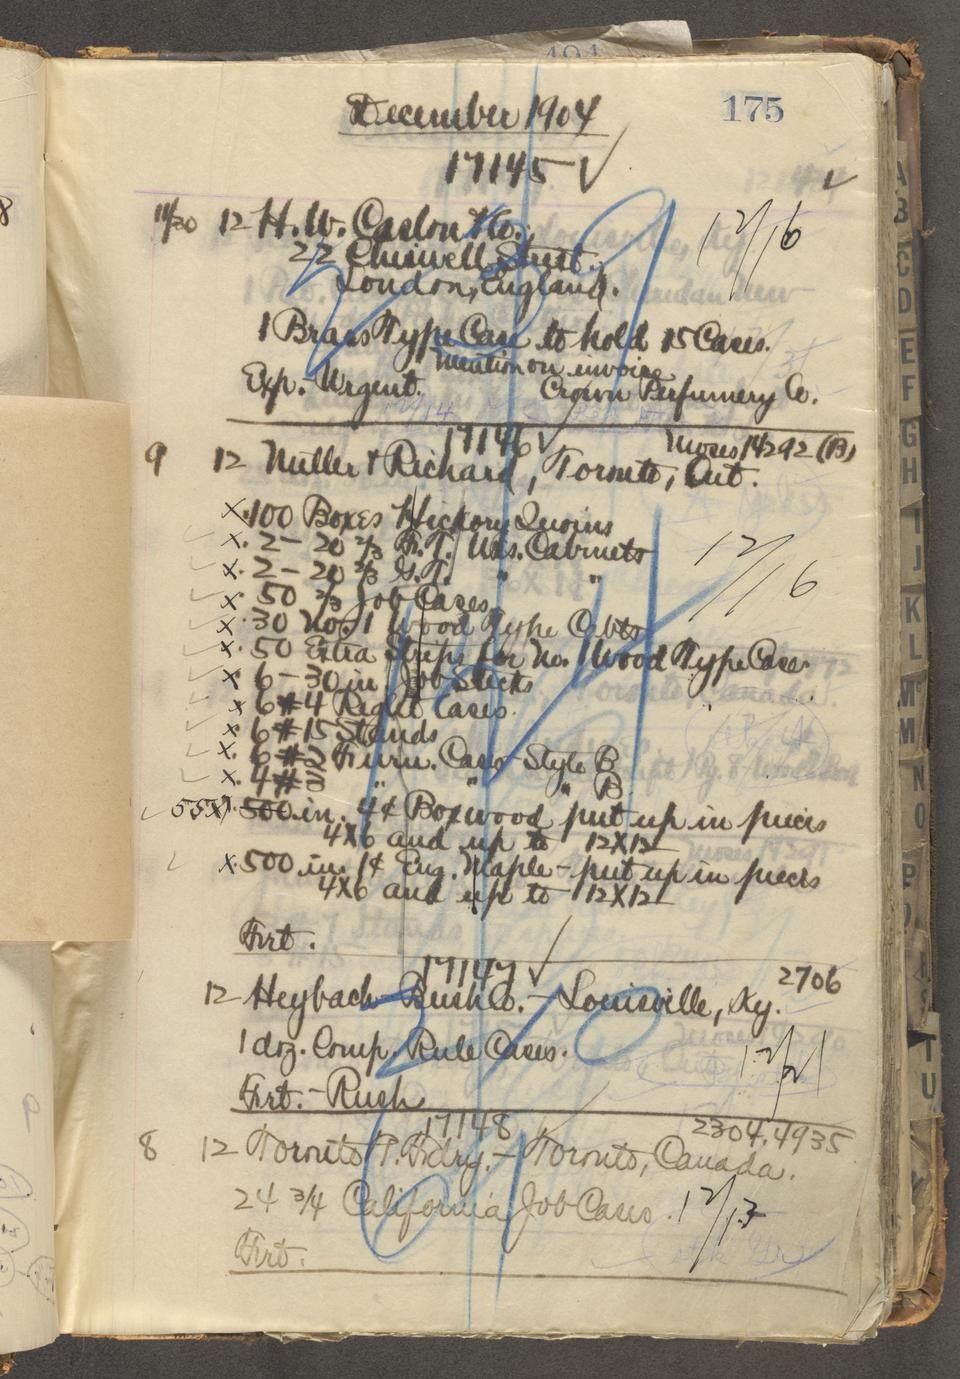 175
December 1904
17145 ✓
11/30 12 H. W. Caslon & Co.,
22 Chiswell Street.
London, England.
12/16
1 Brass Type Case to hold 15 Cases.
Mention on invoice
Exp. Urgent. Crown Perfumery Co.
17146 ✓ Moses 14292 (B)
9 12 Miller & Richard, Toronto, Ont.
x 100 Boxes Hickory Quoins
x 2 - 20 2/3 Cabinets
12/16
x 2 - 20 2/3 " "
x 50 2/3 Job Cases
x 30 No. 1 Wood Type Cbts
x 50 Extra Strips for No. 1 Wood Type Case
x 6 - 30 in Job Sticks
x 6 #4 Right Cases.
x 6 #15 Stands
x 6 #2 Furn. Case Style B
x 4 #3 " " " B
55x 500 in. 4¢ Boxwood put up in pieces
4X6 and up to 12X12
x 500 in. 1¢ Eng. Maple - put up in pieces
4X6 and up to 12X12
Frt.
17147 ✓ 2706
12 Heybach Bush Co. - Louisville, Ky.
1 doz. Comp. Rule Cases. 12/21
Frt. - Rush
17148 2304.4935
8 12 Toronto T. Fdry. - Toronto, Canada.
24 3/4 California Job Cases. 12/13
Frt.
A
B
C
D
E
F
G
H
I
J
K
L
Mc
M
N
O
P
T
U